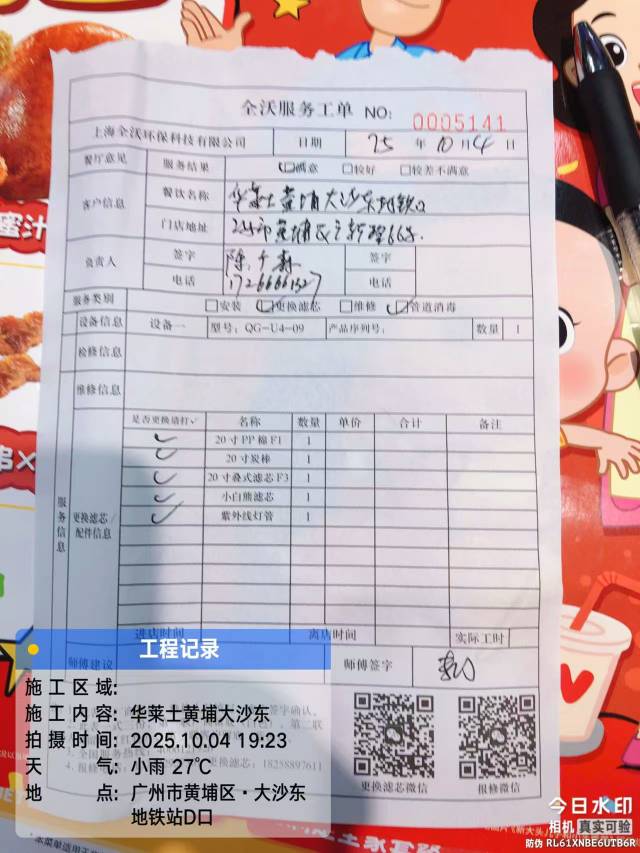 全沃服务工单 NO: 0005141
上海全沃环保科技有限公司 日期 25 年 10 月 4 日
餐厅意见 服务结果 ☑满意 □较好 □较差不满意
客户信息 餐饮名称 华莱士黄埔大沙东地铁口
门店地址
负责人 签字 签字
电话 电话
服务类别 □安装 ☑更换滤芯 □维修 ☑管道消毒
设备信息 设备一 型号: QG-U4-09 产品序列号: 数量 1
检修信息
维修信息
服务信息 更换滤芯/配件信息
是否更换请打√ 名称 数量 单价 合计 备注
✓ 20寸PP棉F1 1
✓ 20寸炭棒 1
✓ 20寸叠式滤芯F3 1
✓ 小白熊滤芯 1
✓ 紫外线灯管 1
进店时间 离店时间 实际工时
师傅建议 师傅签字
更换滤芯微信 报修微信
18258897611
工程记录
施工区域:
施工内容: 华莱士黄埔大沙东
拍摄时间: 2025.10.04 19:23
天 气: 小雨 27℃
地 点: 广州市黄埔区·大沙东
地铁站D口
今日水印
相机 真实可验
防伪 RL61XNBE6UTB6R
蜜汁